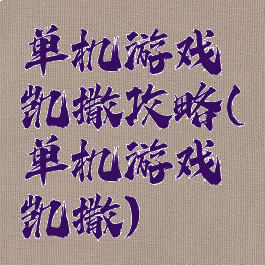 单机游戏
凯撒攻略(
单机游戏
凯撒)